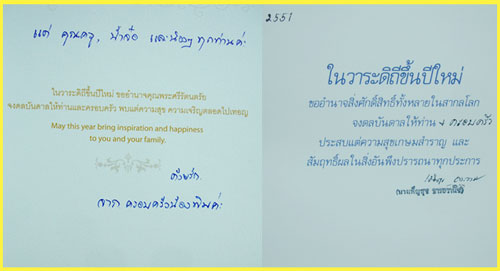 แด่ คุณครู, น้าล้อ และน้องๆ ทุกท่านค่ะ
ในวาระดิถีขึ้นปีใหม่ ขออำนาจคุณพระศรีรัตนตรัย
จงดลบันดาลให้ท่านและครอบครัว พบแต่ความสุข ความเจริญตลอดไปเทอญ
May this year bring inspiration and happiness
to you and your family.
ด้วยรัก
จาก ครอบครัวน้องพิมค่ะ
2551
ในวาระดิถีขึ้นปีใหม่
ขออำนาจสิ่งศักดิ์สิทธิ์ทั้งหลายในสากลโลก
จงดลบันดาลให้ท่าน + ครอบครัว
ประสบแต่ความสุขเกษมสำราญ และ
สัมฤทธิ์ผลในสิ่งอันพึงปรารถนาทุกประการ